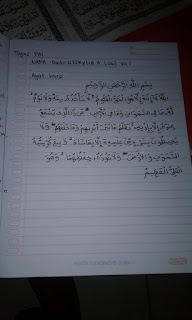 Tugas PAI
NAMA :
Ayat kursi
بِسْمِ اللهِ الرَّحْمٰنِ الرَّحِيْمِ
اَللهُ لَا اِلٰهَ اِلَّا هُوَ الْحَيُّ الْقَيُّوْمُ لَا تَأْخُذُهُ سِنَةٌ وَلَا نَوْمٌ
لَهُ مَا فِى السَّمٰوَاتِ وَمَا فِى الْاَرْضِ مَنْ ذَا الَّذِيْ يَشْفَعُ
عِنْدَهُ اِلَّا بِاِذْنِهِ يَعْلَمُ مَا بَيْنَ اَيْدِيْهِمْ وَمَا خَلْفَهُمْ وَلَا
يُحِيْطُوْنَ بِشَيْءٍ مِنْ عِلْمِهِ اِلَّا بِمَا شَاءَ وَسِعَ كُرْسِيُّهُ
السَّمٰوَاتِ وَالْاَرْضَ وَلَا يَئُوْدُهُ حِفْظُهُمَا وَهُوَ
الْعَلِيُّ الْعَظِيْمُ